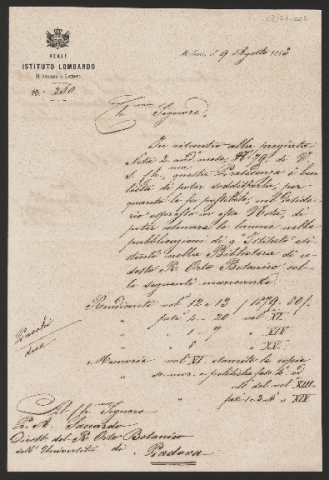 REALE
ISTITUTO LOMBARDO
di Scienze e Lettere
N.° 230
Milano, il 9 Agosto 1882
Ill. Signore,
In riscontro alla pregiata
Nota 2 and. mese, N. 79 di V.
S. Ill.ma, questa Presidenza è ben
lieta di poter soddisfarla, per
quanto
nel deside
rio espresso in essa Nota, di
poter colmare le lacune nelle
pubblicazioni di q. Istituto esi
stenti nella Biblioteca di co
desto R. Orto Botanico coll
e seguenti mancanti.
Rendiconti vol. 12 e 13 1879-80
" fasc. 4 - 20 vol. XI
" " 7 " XIV
" " 8 " XV
Memorie vol. XI
" fasc. del vol. XIII
fasc. 1-2 " XIV
Pacchi
due
All' Ill. Signore
P. A. Saccardo
Dirett. del R. Orto Botanico
dell' Università di
Padova